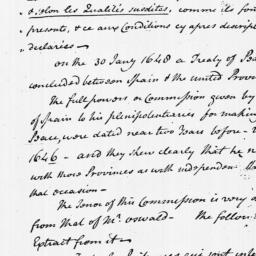 & selon les Qualités susdites, comme ils font
presents, & ce aux Conditions cy apres descript
declarées —
on the 30 Jany 1648 a Treaty of P
concluded between Spain & the united Provin
The full powers or Commission given by
of Spain to his plenipotentiaries for makin
Peace, were dated near two Years before —
1646 — and they shew clearly that he
with those Provinces as with independent
that occasion —
The Tenor of this Commission is very d
from that of Mr. Oswald — The follow
Extract from it —